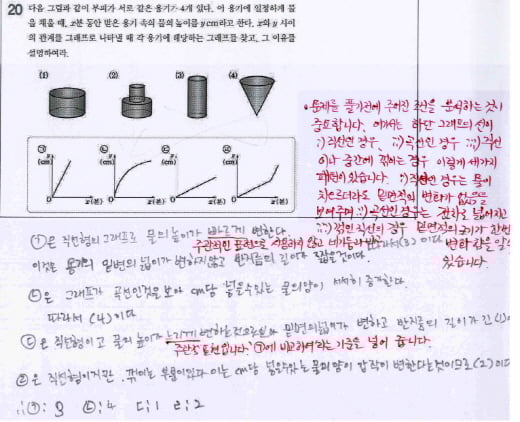 20 다음 그림과 같이 부피가 서로 같은 용기가 4개 있다. 이 용기에 일정하게 물
을 채울 때, x분 동안 받은 용기 속의 물의 높이를 y cm라고 한다. x와 y 사이
의 관계를 그래프로 나타낼 때 각 용기에 해당하는 그래프를 찾고, 그 이유를
설명하여라.
(1) (2) (3) (4)
㉠ y (cm) x(분) ㉡ y (cm) x(분) ㉢ y (cm) x(분) ㉣ y (cm) x(분)
문제를 풀기전에 주어진 조건을 분석하는 것이
중요합니다. 여기서는 하단 그래프의 선이
i) 직선인 경우, ii) 곡선인 경우 iii) 직선
이나 중간에 꺾이는 경우 이렇게 세가지
패턴이 있습니다. i) 직선인 경우는 물이
차오르더라도 밑면적의 변화가 없으므로
ii) 곡선인 경우는 점차로 넓어지고
iii) 꺾인 직선의 경우 밑면적의 크기가 한번
변화함을 알 수
있습니다.
㉠은 직선형의 그래프로 물의 높이가 빠르게 변한다.
주관적인 표현으로 사용하지 않고
이것은 용기의 밑변의 넓이가 변하지않고 반지름의 길이가 짧을것이다. 따라서 (3)이다
㉡은 그래프가 곡선인것을 보아 cm당 넣을수있는 물의양이 서서히 증가한다
따라서 (4)이다
㉢은 직선형이고 물의 높이가 느리게 변하는것으로보아 밑면의넓이가 변하고 반지름의 길이가 긴 (1)이
주관적 표현입니다. ㉠에 비교하여 라는 기준을 넣어 줍니다.
㉣은 직선형이지만 꺾이는 부분이있다 이는 cm당 넣을수있는 물의양이 갑작이 변한다는것이므로 (2)이다
∴ ㉠: 3 ㉡: 4 ㄷ: 1 ㄹ: 2